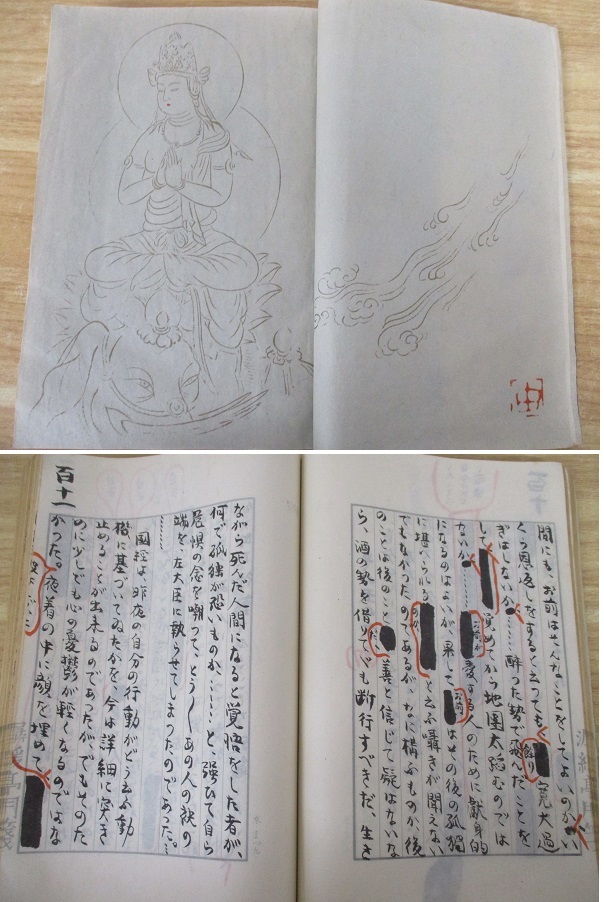 間にも、お前はそんなことをしてよいのか、い
くら恩返しをすると云つても、餘り寛大過
ぎはしないか、……酔つた勢で飛んだことを
して、覚めてから地團太蹈むのでは
ないか、……お前が愛する人のために献身的
になるのはよいが、果してお前はその後の孤獨
に堪へられるのかと云ふ囁きが聞えない
でもなかつたのであるが、なに構ふものか、後
のことは後のことだ、善と信じて疑はないな
ら、酒の勢を借りてゞも断行すべきだ、生き
ながら死んだ人間になると覚悟をした者が、
何で孤獨が恐いものか、……と、強ひて自ら
危惧の念を嘲つて、とう〳〵あの人の袂の
端を、左大臣に執らせてしまつたのであつた。…
…………
国経は、昨夜の自分の行動がどう云ふ動
機に基づいてゐたかを、今は詳細に突き
止めることが出来るのであつたが、でもそのた
めに少しでも心の憂鬱が軽くなるのではな
かつた。夜着の中に顔を埋めて
百十一